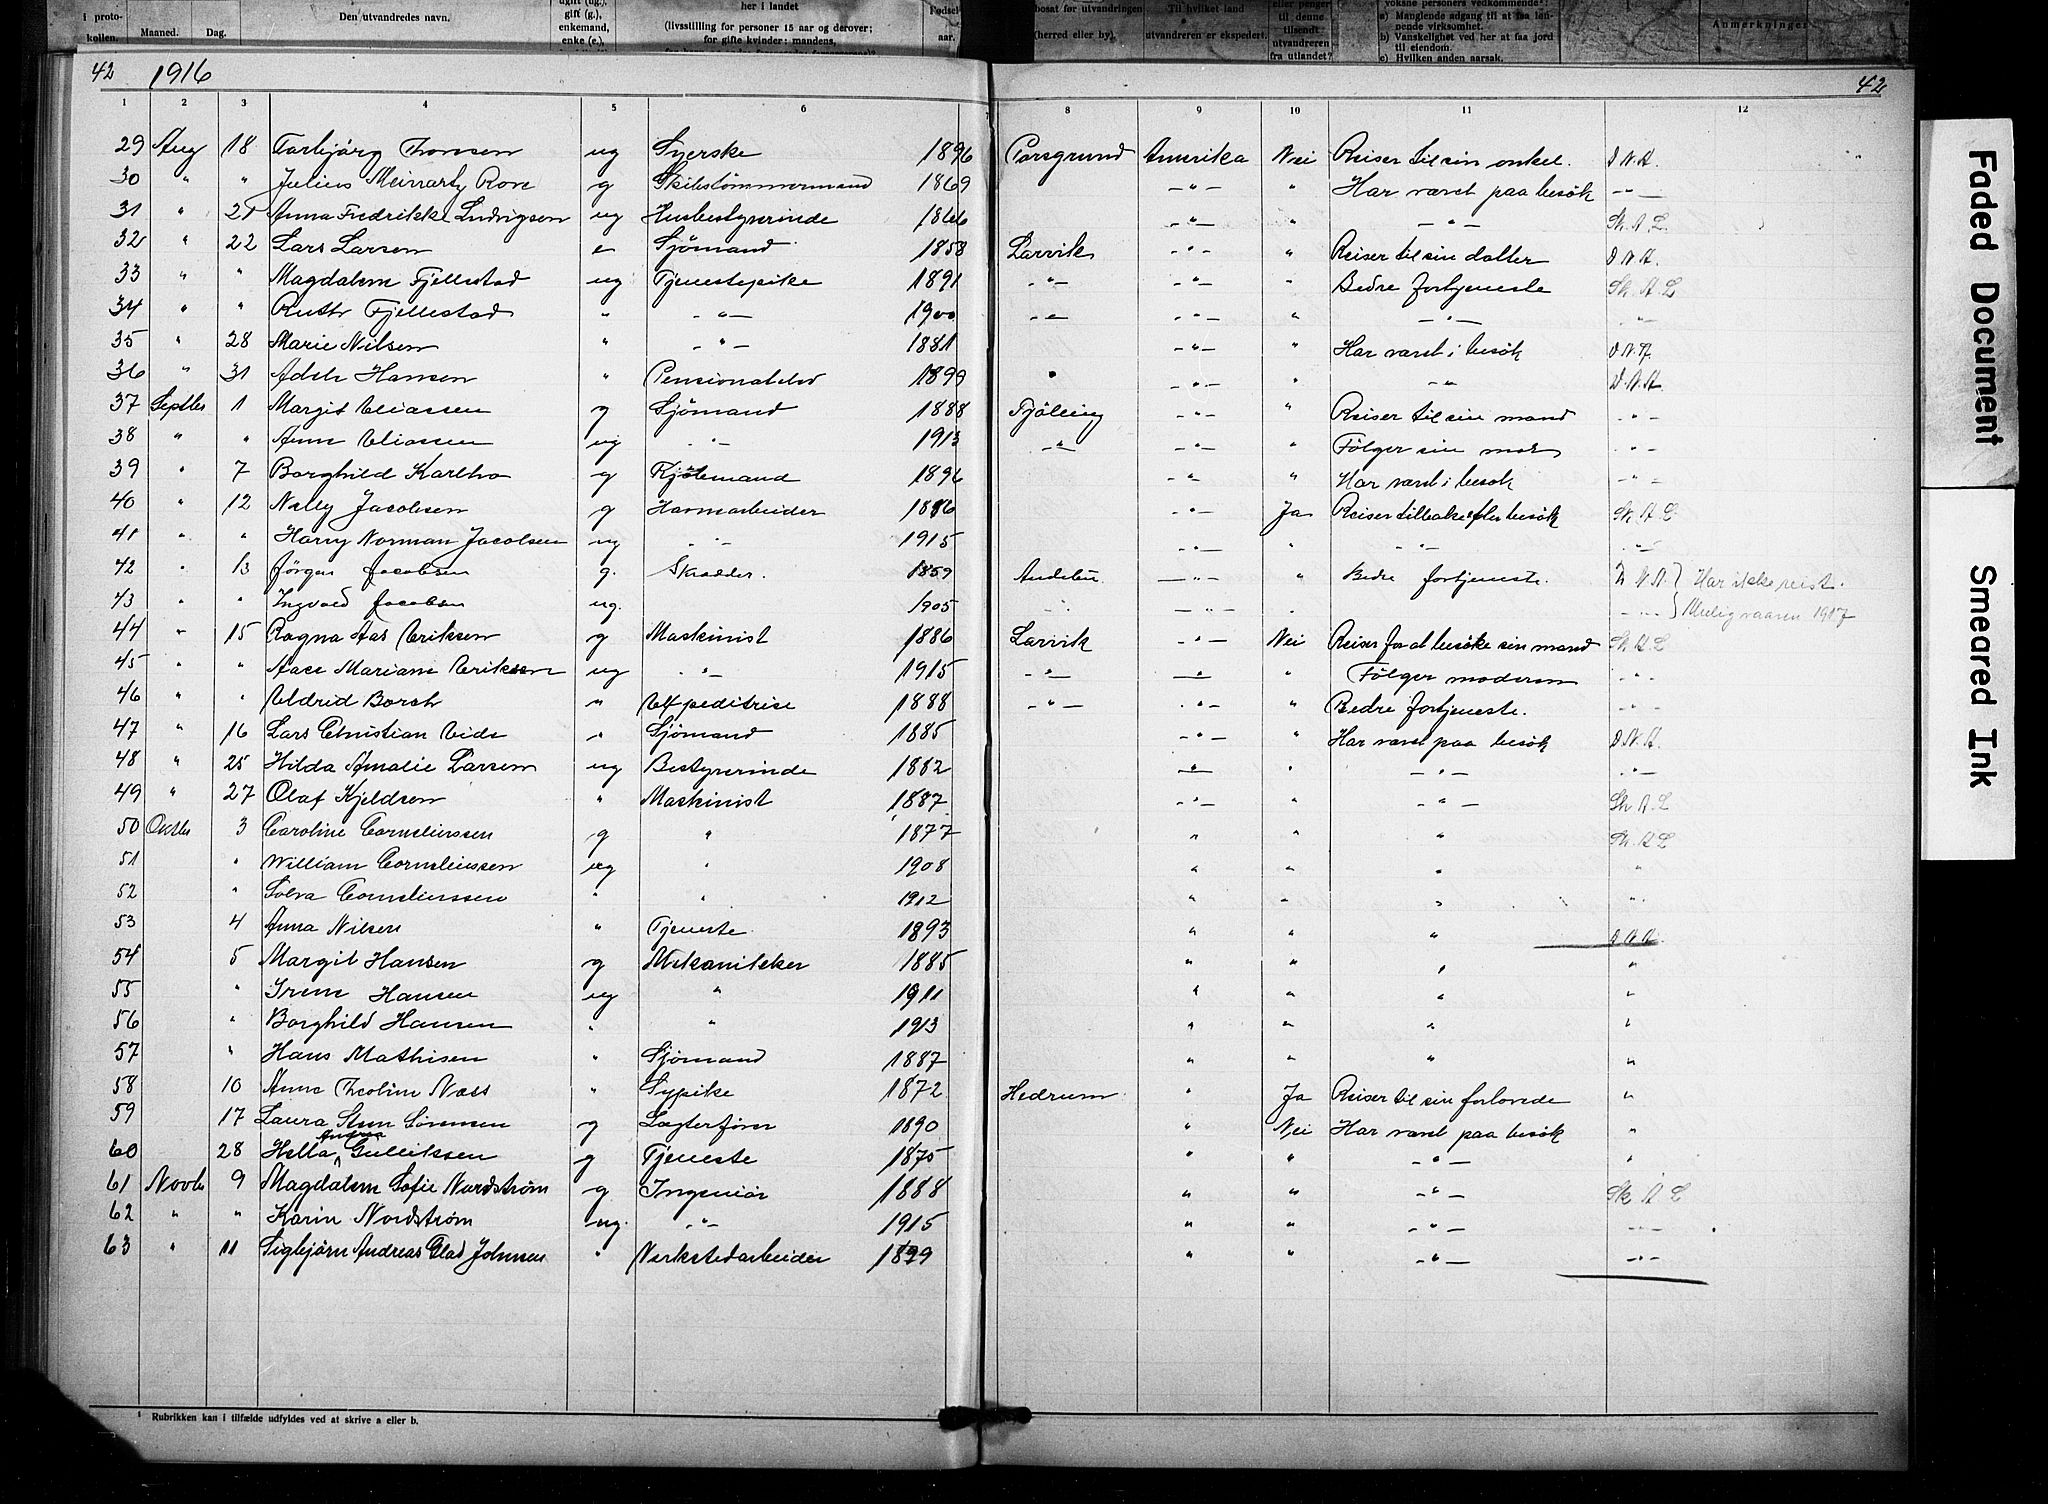 i proto-
kollen.
Maaned. Dag.
Den utvandredes navn.
gift (g.),
enkemand,
enke (e.),
her i landet
(livsstilling for personer 15 aar og derover;
for gifte kvinder: mandens,
Fødsel
aar.
bosat før utvandringen
(herred eller by).
Til hvilket land
utvandreren er ekspedert.
eller penger
til denne
tilsendt
utvandreren
fra utlandet?
a) Manglende adgang til at faa løn-
nende virksomhet.
b) Vanskelighet ved her at faa jord
til eiendom.
c) Hvilken anden aarsak.
Anmerkninger
42 1916 42
1 2 3 4 5 6 8 9 10 11 12
29 Aug 18 Torbjörg Thomsen ug Syerske 1896 Porsgrund Amerika Nei Reiser til sin onkel. D N A.
30 " " Julius g Skibstømmermand 1869 -"- " Har været paa besök -"-
31 " 21 Anna Fredrikke Ludvigsen ug Husbestyrerinde 1866 -"- " -"- Sk. A. L.
32 " 22 Lars Larsen e Sjömand 1853 Larvik -"- " Reiser til sin datter D N A.
33 " " Magdalene Fjellestad ug Tjenestepike 1891 -"- -"- " Bedre fortjeneste Sk. A. L
34 " " Ruth Fjellestad " -"- 1900 -"- -"- " -"- -"-
35 " 28 Marie Nilsen " -"- 1881 -"- " Har været i besök D. N. A.
36 " 31 Adele Hansen " 1899 " -"- " -"- D. N. A.
37 Septbr 1 Margit Eliassen g Sjömand 1888 Tjölling -"- " Reiser til sin mand -"-
38 " " Anne Eliassen ug -"- 1913 -"- -"- " Fölger sin mor -"-
39 " 7 Borghild Karlho g 1896 -"- " Har været i besök -"-
40 " 12 Nelly Jacobsen g Havnearbeider 1886 -"- Ja Reiser tilbake efter besök Sk. A. L.
41 " " Harry Norman Jacobsen ug -"- 1915 -"- " -"- -"-
42 " 13 Jörgen Jacobsen g. Skrædder. 1859 Andebu -"- " Bedre fortjeneste. D. N. A. } Har ikke reist.
43 " " Ingvald Jacobsen ug. 1905 -"- -"- " -"- } Mulig vaaren 1917
44 " 15 Ragna Aas Eriksen g Maskinist 1886 Larvik -"- Nei Reiser for at besöke sin mand Sk. A. L
45 " " Aase Mariane Eriksen ug -"- 1915 -"- -"- " Fölger moderen -"-
46 " " Eldrid Borch " Expeditrise 1888 -"- -"- " Bedre fortjeneste. -"-
47 " 16 Lars Christian Eide " Sjömand 1885 -"- " Har været paa besök D. N. A.
48 " 25 Hilda Amalie Larsen ug Bestyrerinde 1882 -"- " -"- -"-
49 " 27 Olaf Kjeldsen " Maskinist 1887 -"- " -"- Sk. A. L
50 Oktbr 3 Caroline Corneliussen g " 1877 " " " Sk. A. L
51 " William Corneliussen ug " 1908 " " " "
52 " Solva Corneliussen " " 1912 " " " "
53 4 Anna Nilsen " Tjeneste 1893 " " " D. N. A.
54 5 Margit Hansen g Mekanikker 1885 " " " "
55 " Irene Hansen ug " 1911 " " " "
56 " Borghild Hansen " " 1913 " " " "
57 " Hans Mathisen " Sjömand 1887 " " " "
58 10 Anne Theoline Næss " Sypike 1872 Hedrum " Ja Reiser til sin forlovede "
59 17 Laura Sørensen g Lægterfører 1890 " Nei Har været paa besök "
60 28 Hella Andrea Gulliksen g Tjeneste 1875 " " -"- "
61 Novbr 9 Magdalene Sofie Nordström g Ingeniör 1888 " " -"- Sk. A. L
62 " " Karin Nordström ug. -"- 1915 " " -"- -"-
63 " 11 Sigbjörn Andreas Glad Johnsen " Verkstedarbeider 1899 " " -"- -"-
¹ Rubrikken kan i tilfælde udfyldes ved at skrive a eller b.
Faded Document
Smeared Ink